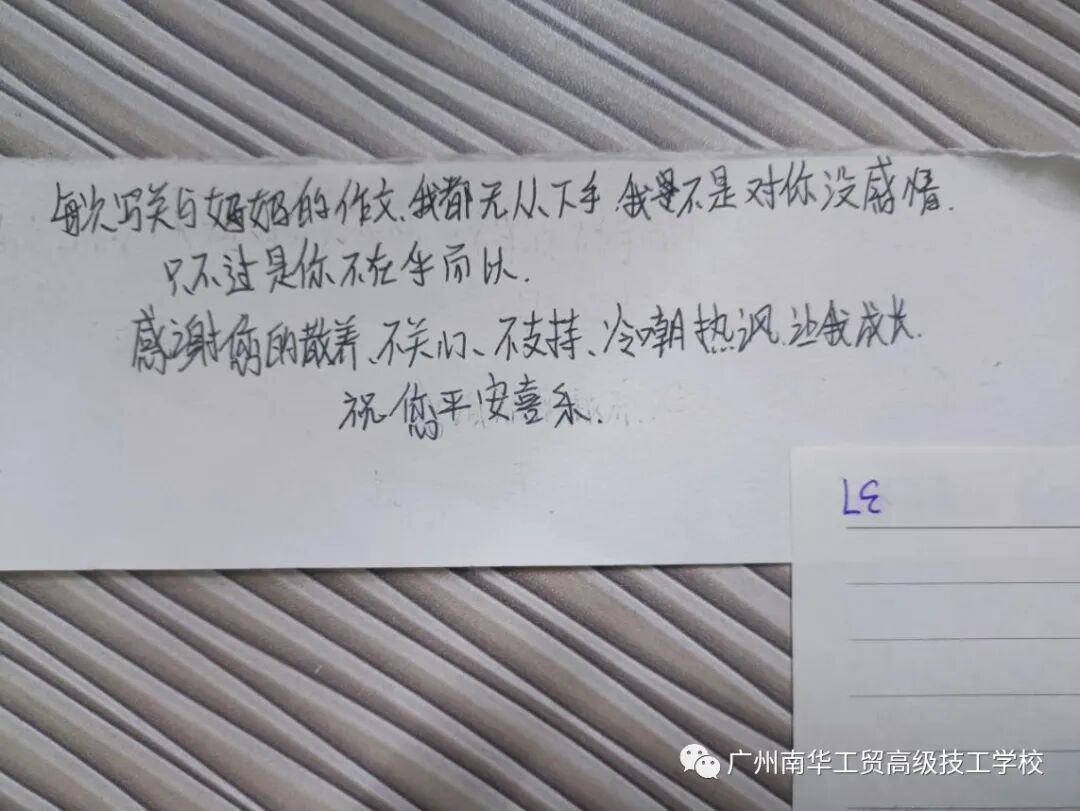 每次写关与妈妈的作文、我都无从下手.我不是对你没感情.
只不过是你不在乎而以.
感谢您的散养、不关心、不支持、冷嘲热讽.让我成长.
祝您平安喜乐.
37
广州南华工贸高级技工学校